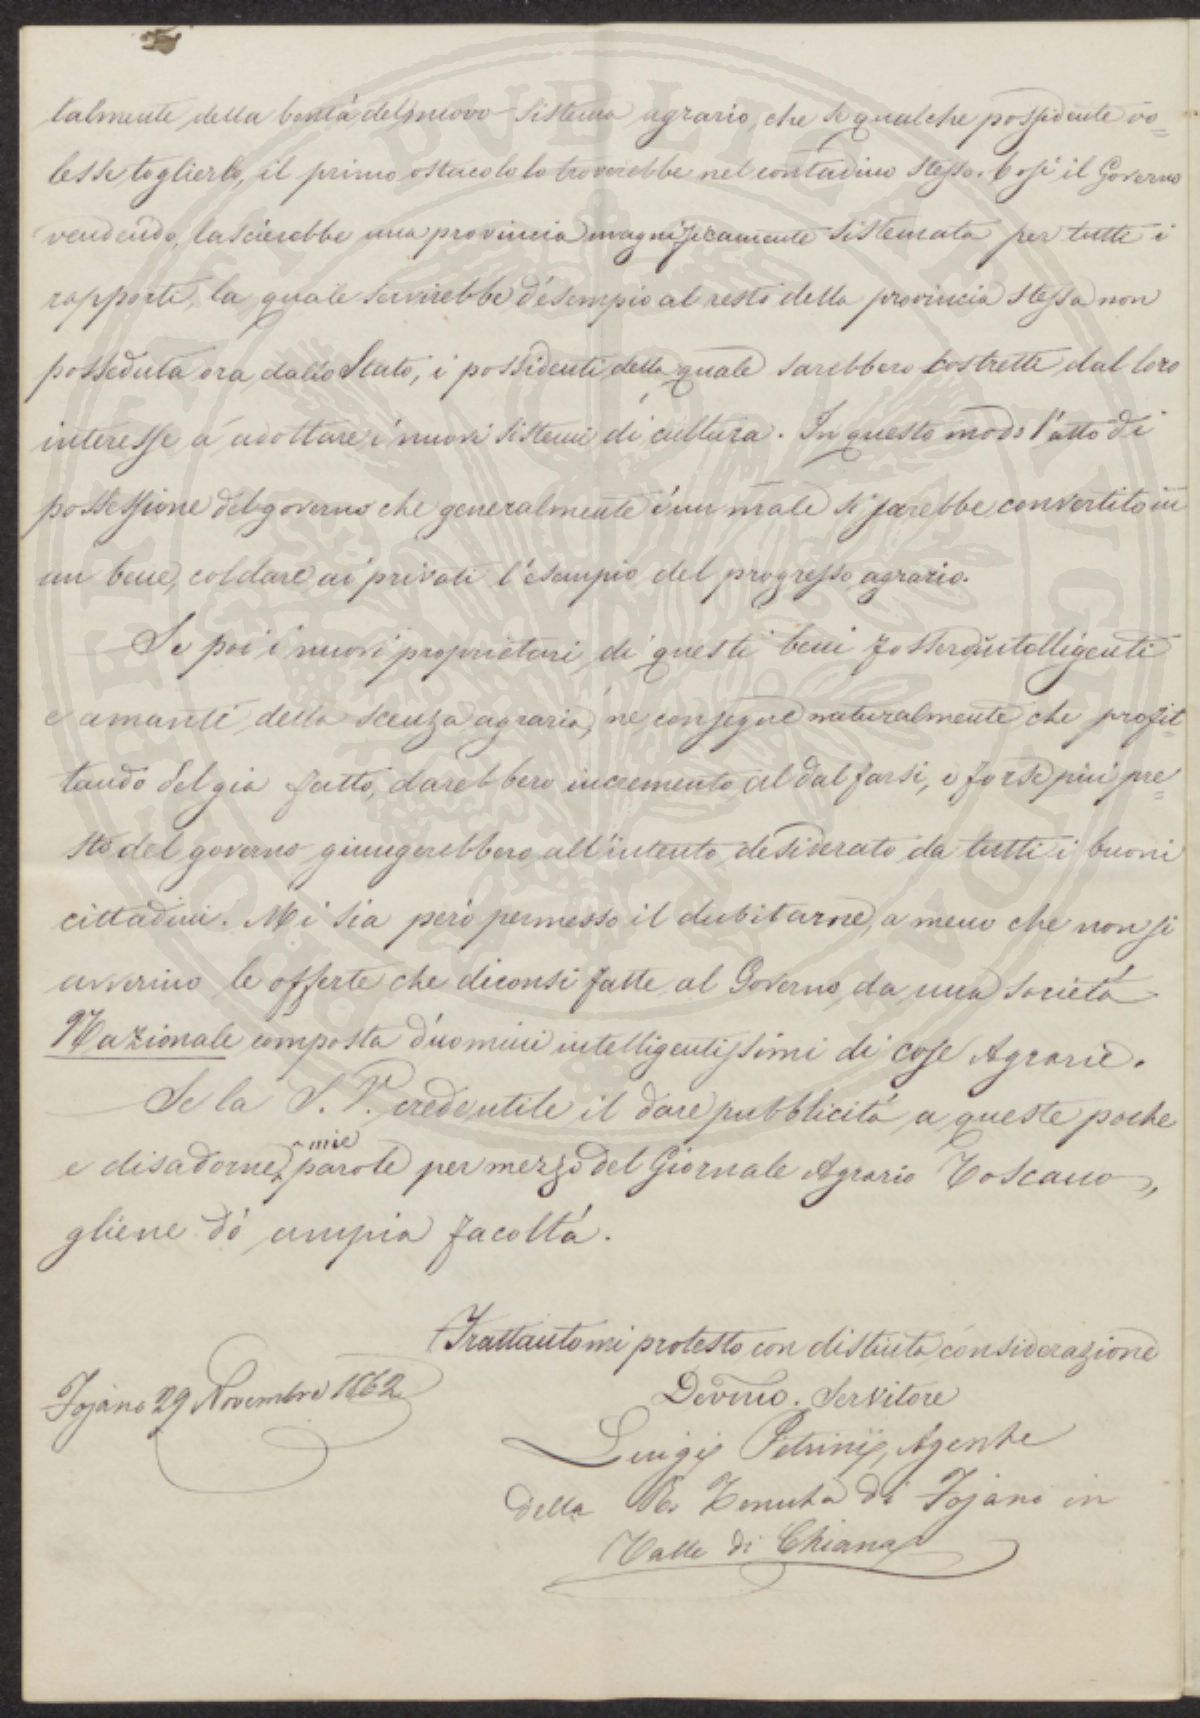 talmente della bontà del nuovo sistema agrario, che se qualche possidente vo=
lesse toglierlo, il primo ostacolo lo troverebbe nel contadino stesso. Così il Governo
vendendo, lascierebbe una provincia magnificamente sistemata per tutti i
rapporti, la quale servirebbe d'esempio al resto della provincia stessa non
posseduta ora dallo Stato, i possidenti della quale sarebbero costretti dal loro
interesse a adottare i nuovi sistemi di cultura. In questo modo l'atto di
possessione del governo che generalmente è un male si sarebbe convertito in
un bene, col dare ai privati l'esempio del progresso agrario.
Se poi i nuovi proprietari di questi beni fossero intelligenti
e amanti della scenza agraria, ne consegue naturalmente che profit=
tando del già fatto, darebbero incremento al dal farsi, e forse più pre=
sto del governo giungerebbero all'intento desiderato da tutti i buoni
cittadini. Mi sia però permesso il dubitarne, a meno che non si
avverino le offerte che diconsi fatte al Governo da una Società
Nazionale composta d'uomini intelligentissimi di cose Agrarie.
Se la S. V. crede utile il dare pubblicità a queste poche
e disadorne mie parole per mezzo del Giornale Agrario Toscano,
gliene dò ampia facoltà.
Trattanto mi protesto con distinta considerazione
Fojano 29 Novembre 1862
Devmo. Servitore
Luigi Petrini, Agente
della R. Tenuta di Fojano in
Valle di Chiana
PUBLIC